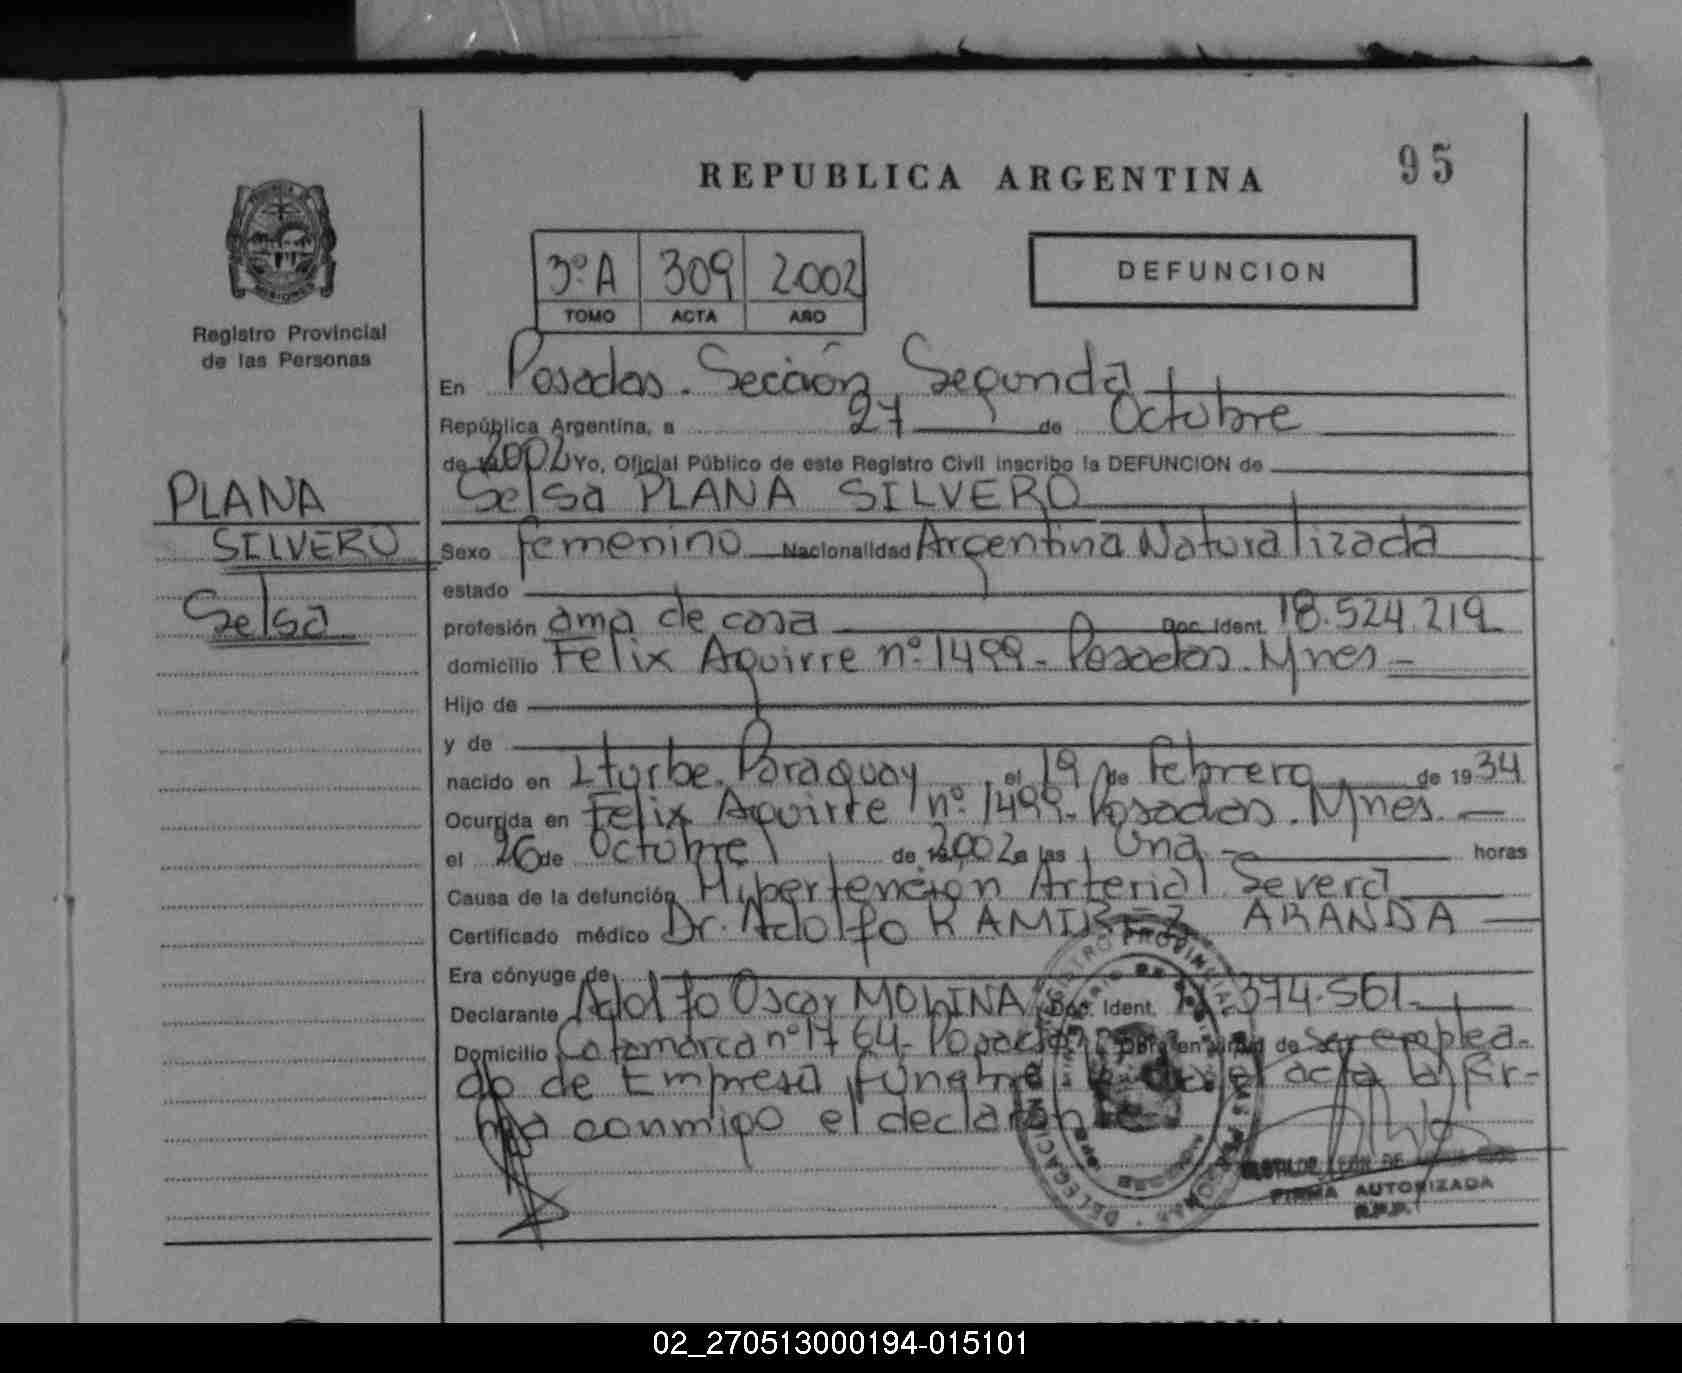 REPUBLICA ARGENTINA
95
3º A 309 2002
TOMO ACTA AÑO
DEFUNCION
Registro Provincial
de las Personas
En Posadas. Sección Segunda
República Argentina, a 27 de Octubre
de 2002 Yo, Oficial Público de este Registro Civil inscribo la DEFUNCION de
Selsa PLANA SILVERO
PLANA
SILVERO
Selsa
Sexo femenino Nacionalidad Argentina Naturalizada
estado
profesión ama de casa Doc. Ident. 18.524.219
domicilio Felix Aguirre nº 1499 - Posadas. Mnes -
Hijo de
y de
nacido en Iturbe. Paraguay el 19 de Febrero de 1934
Ocurrida en Felix Aguirre nº 1499 - Posadas. Mnes. -
el 26 de Octubre de 2002 a las Una - horas
Causa de la defunción Hipertención Arterial Severa
Certificado médico Dr. Adolfo RAMIREZ ARANDA
Era cónyuge de
Declarante Adolfo Oscar MOLINA Doc. Ident. 374.561-
Domicilio Catamarca nº 1764 - Posadas Obra en virtud de ser emplea-
do de Empresa funebre el acta la fir-
ma conmigo el declarante
REGISTRO PROVINCIAL
DELEGACION
FIRMA AUTORIZADA
R.P.P.
02_270513000194-015101